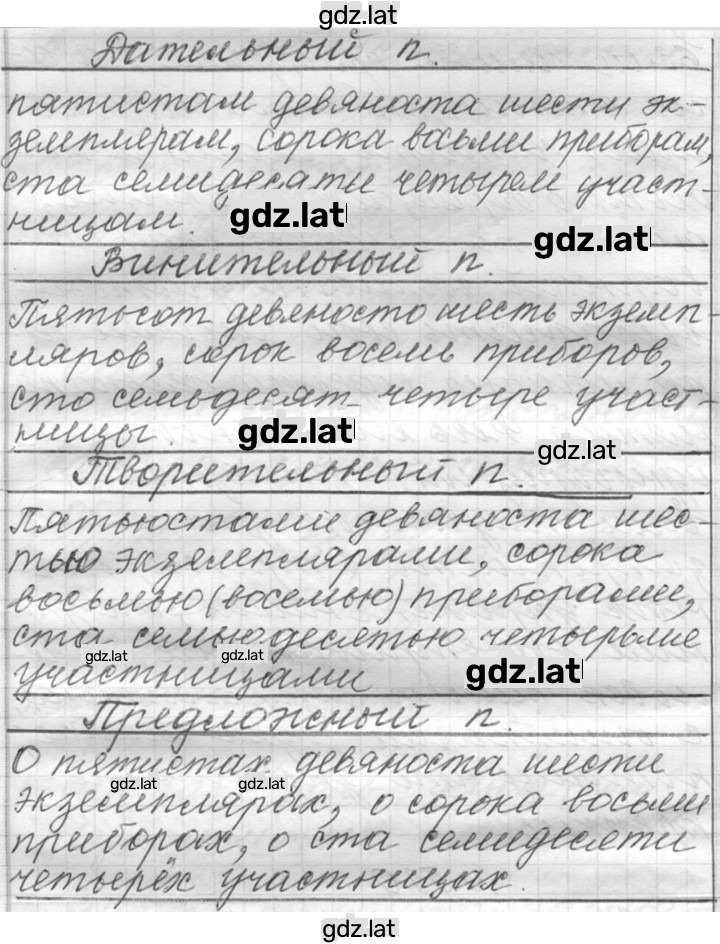 gdz.lat
Дательный п.
пятистам девяноста шести эк-
земплярам, сорока восьми приборам,
ста семидесяти четырем участ-
ницам.
gdz.lat
gdz.lat
Винительный п.
Пятьсот девяносто шесть экземп-
ляров, сорок восемь приборов,
сто семьдесят четыре участ-
ницы.
gdz.lat
gdz.lat
Творительный п.
Пятьюстами девяноста шес-
тью экземплярами, сорока
восьмью (восемью) приборами,
ста семьюдесятью четырьмя
gdz.lat gdz.lat
участницами
gdz.lat
Предложный п.
О пятистах девяноста шести
gdz.lat gdz.lat
экземплярах, о сорока восьми
приборах, о ста семидесяти
четырёх участницах.
gdz.lat